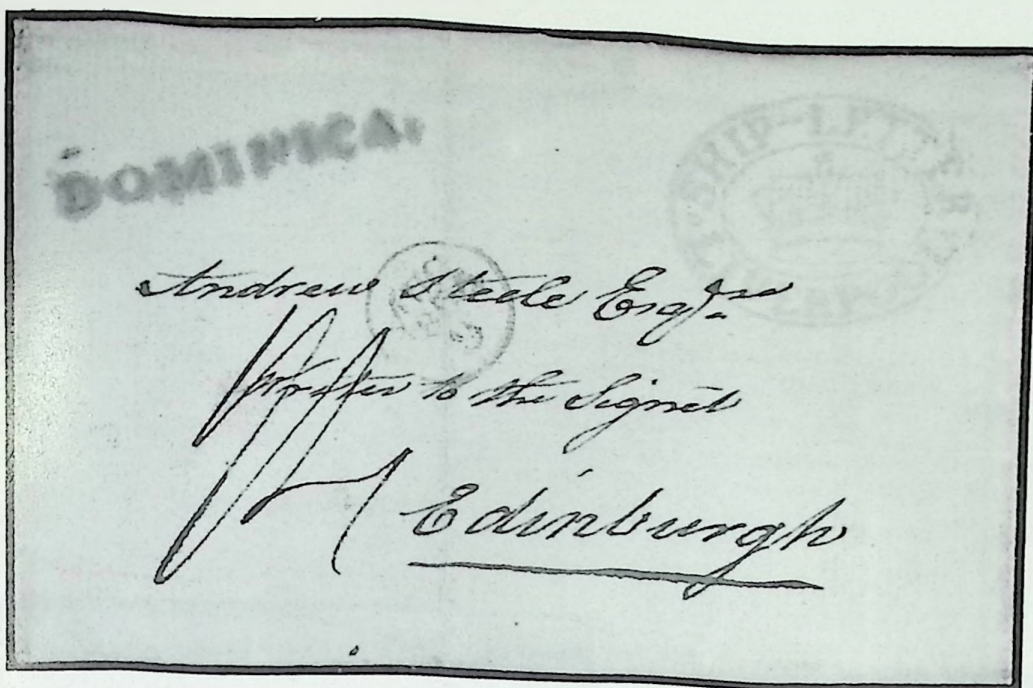 DOMINICA.
SHIP-LETTER
Andrew Steele Esqre
Writer to the Signet
Edinburgh